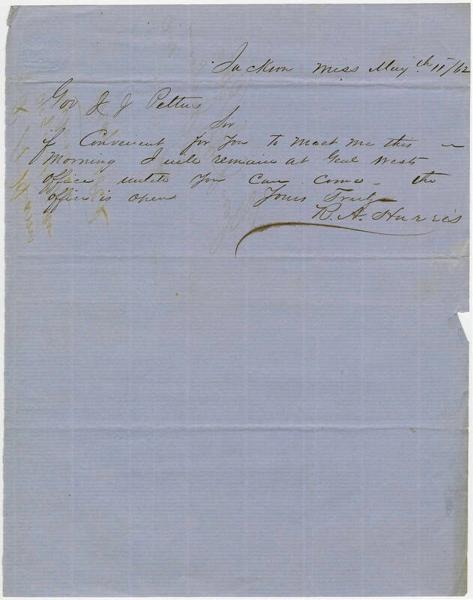 Jackson Miss May th 11/62
Gov J J Pettus
Sir
if Convenient for You to meet me this
Morning I will remain at Genl West
office untill You can come - the
office is open
Yours Truly
D. A. Harris